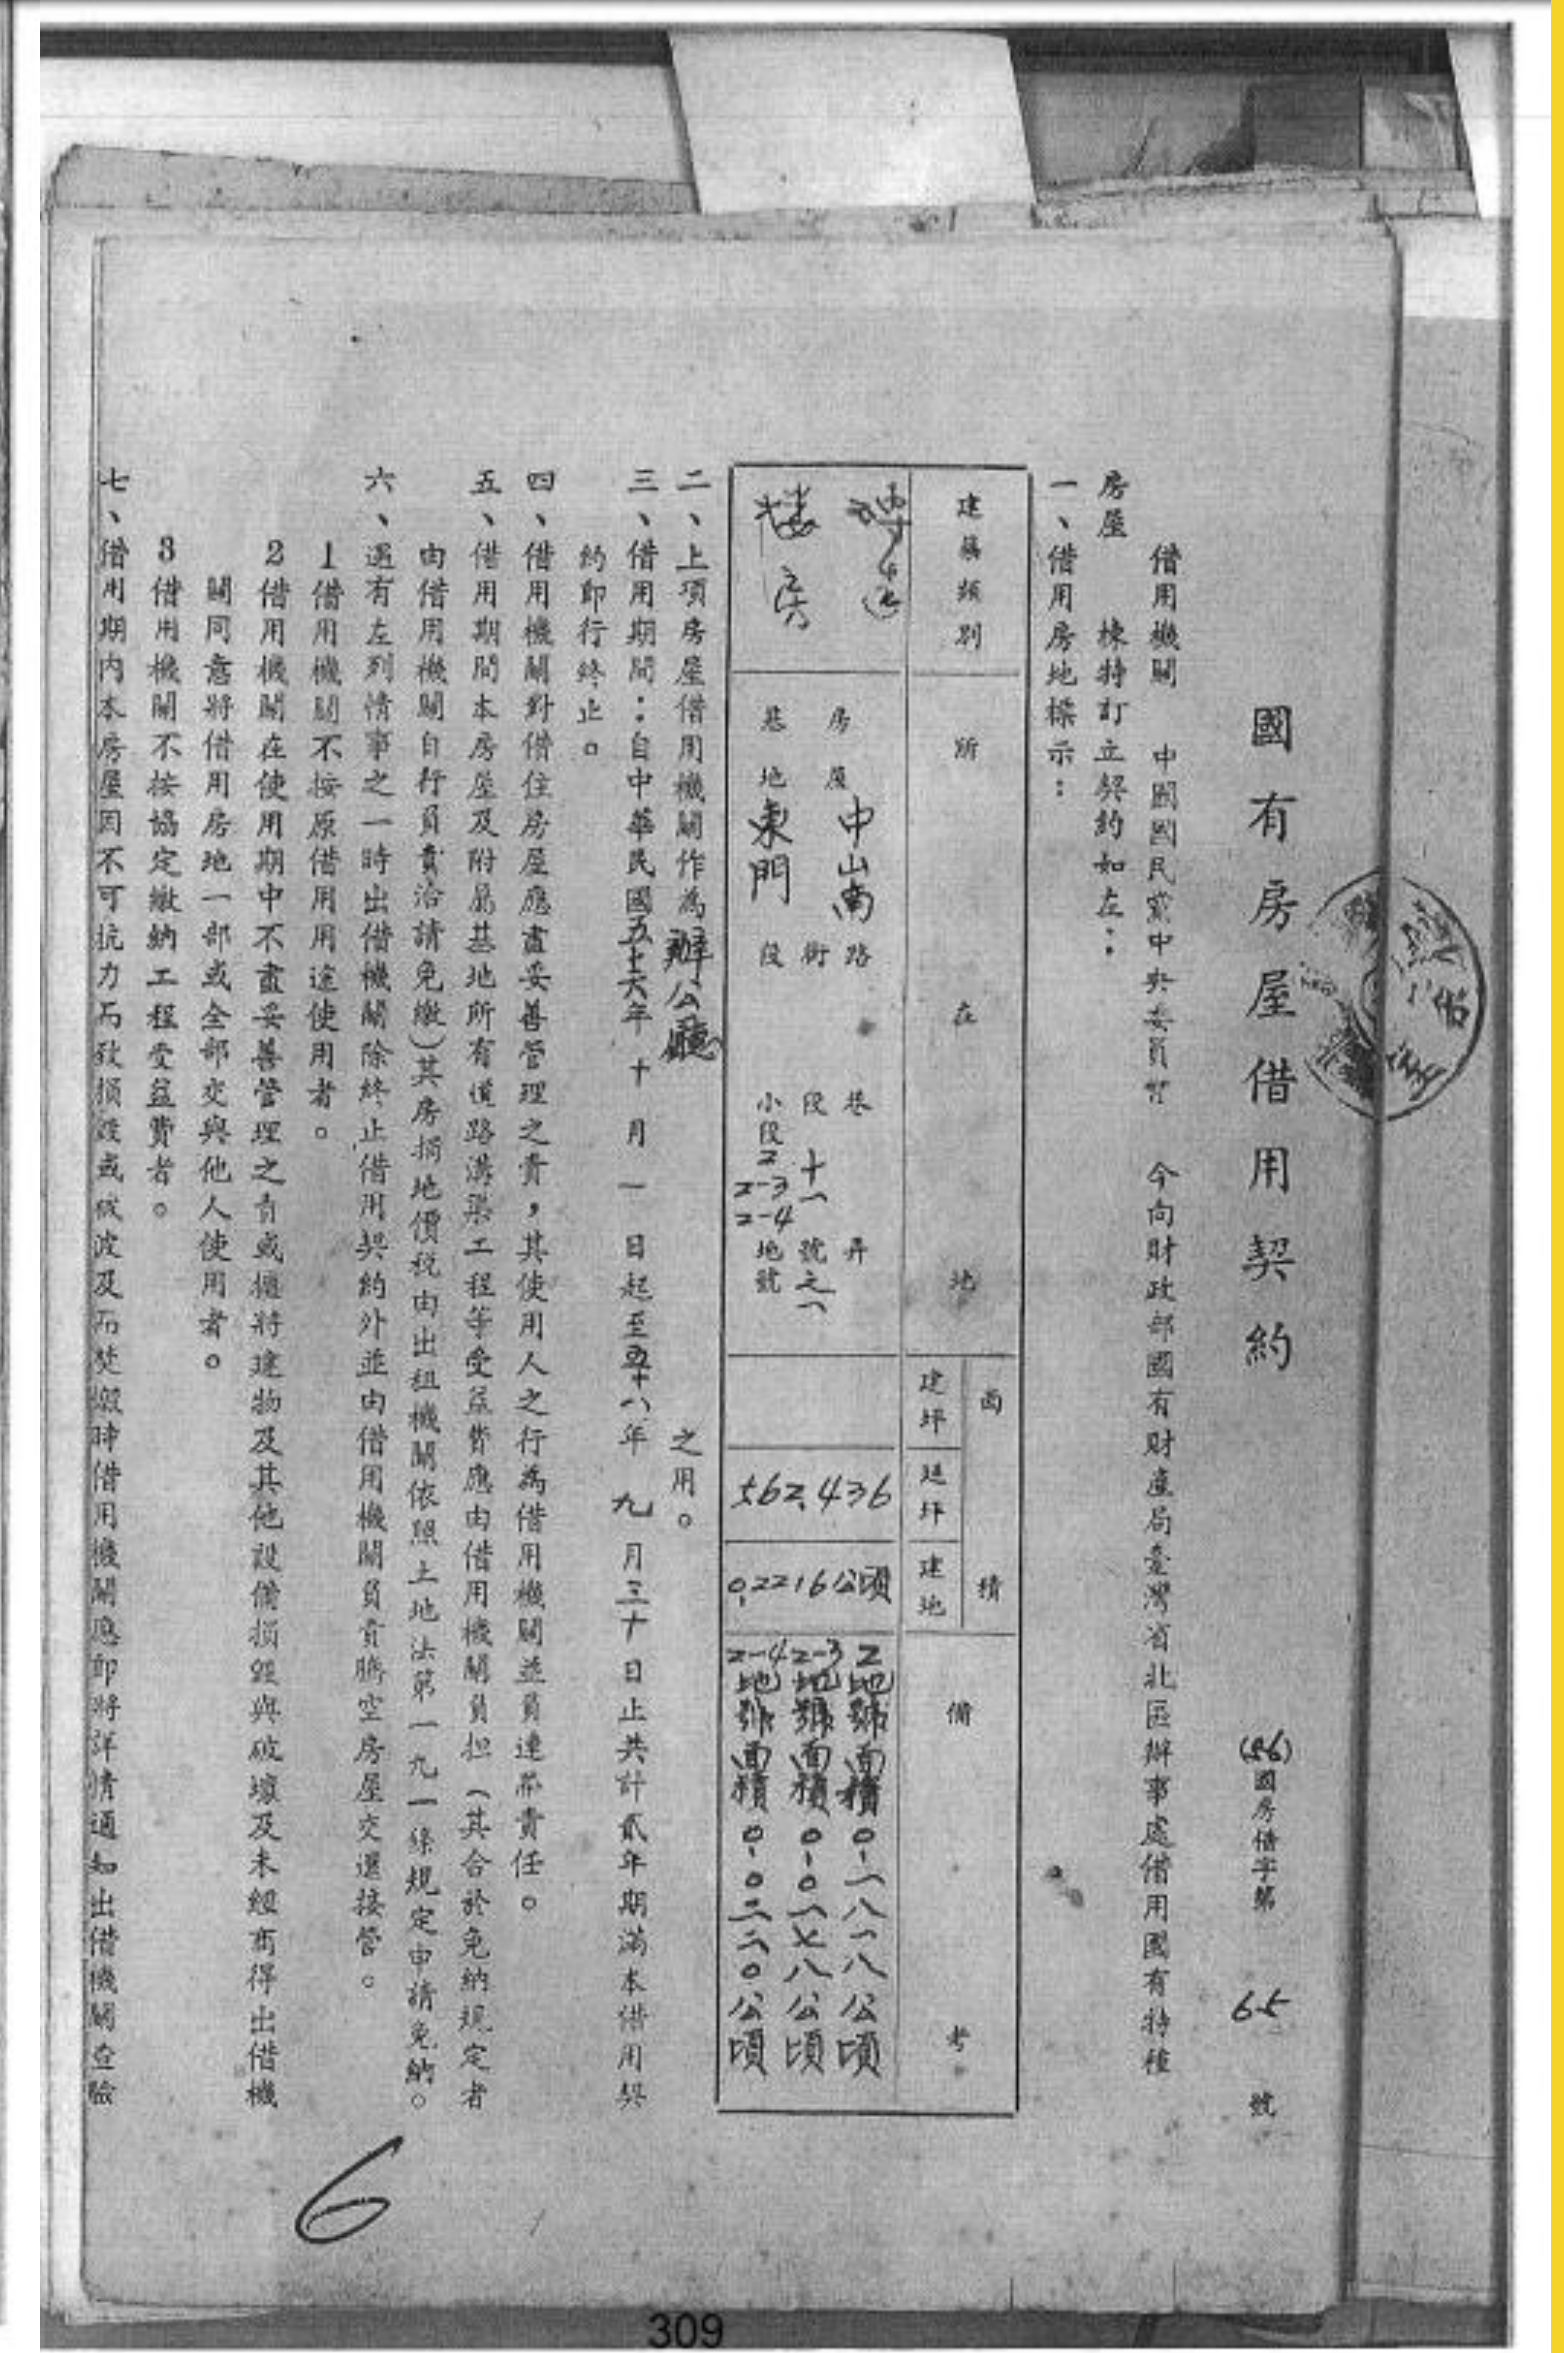 國有房屋借用契約
(56)國房借字第 65 號
借用機關 中國國民黨中央委員會 今向財政部國有財產局臺灣省北區辦事處借用國有特種
房屋 棟特訂立契約如左：
一、借用房地標示：
建築類別 所在地 面積 建坪 延坪 建地 備考
磚造
樓房
房屋 中山南 路街段 巷段 十一 弄號之一
基地 東門 段 小段 2 2-3 2-4 地號
562.436
0.2216公頃
2地號面積0.一八一八公頃
2-3地號面積0.0一七八公頃
2-4地號面積0.0二二0公頃
二、上項房屋借用機關作為辦公廳 之用。
三、借用期間：自中華民國五十六年十月一日起至五十八年九月三十日止共計貳年期滿本借用契
約即行終止。
四、借用機關對借住房屋應盡妥善管理之責，其使用人之行為借用機關並負連帶責任。
五、借用期間本房屋及附屬基地所有道路溝渠工程等受益費應由借用機關負担（其合於免納規定者
由借用機關自行負責洽請免繳）其房捐地價稅由出租機關依照土地法第一九一條規定申請免納。
六、遇有左列情事之一時出借機關除終止借用契約外並由借用機關負責騰空房屋交還接管。
1借用機關不按原借用用途使用者。
2借用機關在使用期中不盡妥善管理之責或擅將建物及其他設備損毀與破壞及未經商得出借機
關同意將借用房地一部或全部交與他人使用者。
3借用機關不按協定繳納工程受益費者。
七、借用期內本房屋因不可抗力而致損毀或被波及而焚燬時借用機關應即將詳情通知出借機關查驗
6
309